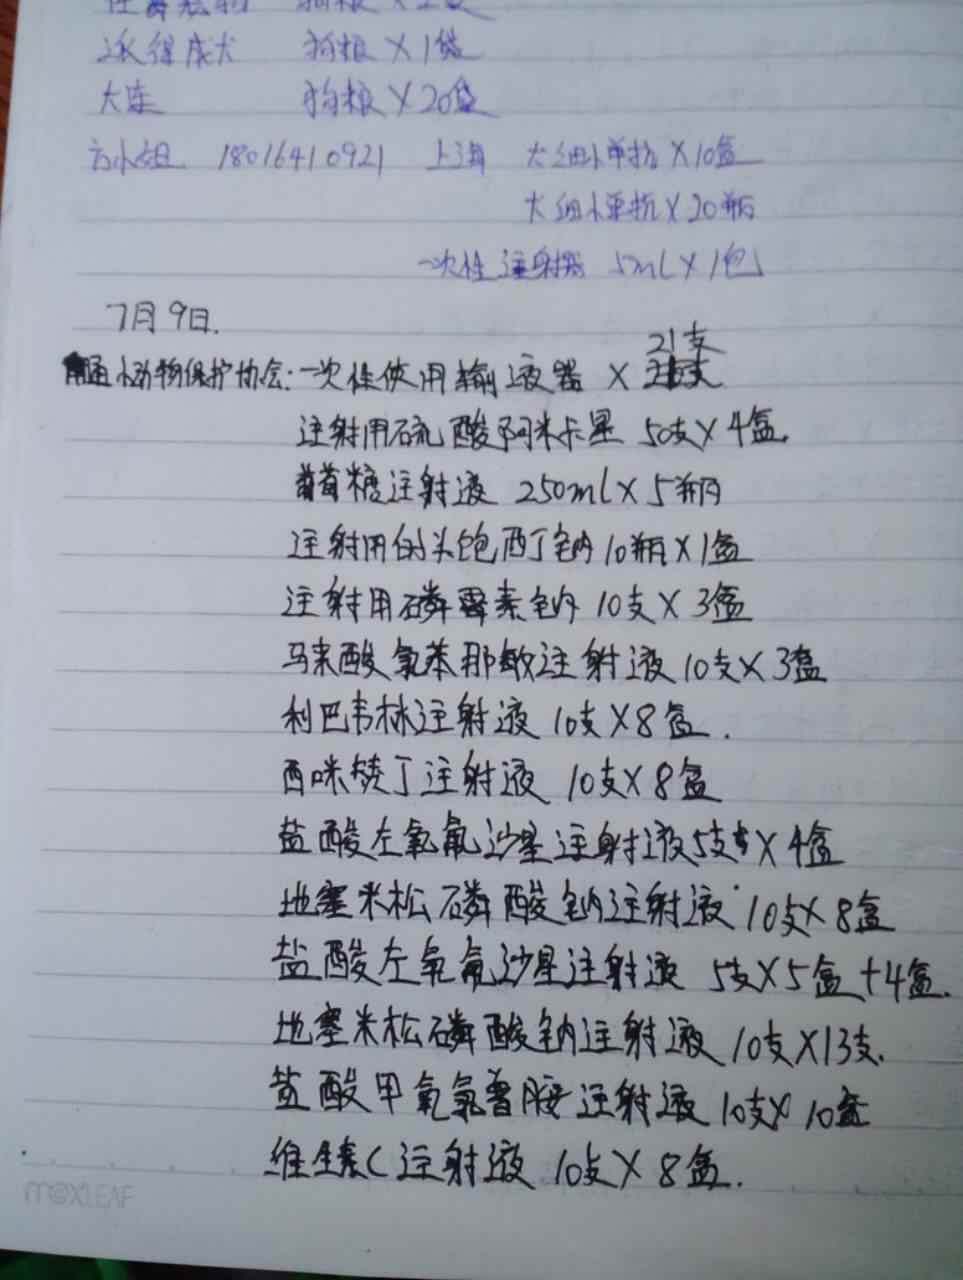 狗粮×2袋
成犬 狗粮×1袋
大连 狗粮×20袋
方小姐 18016410921 上海 犬细小单抗×10盒
犬细小单抗×20瓶
一次性注射器 5ml×1包
7月9日.
南通小动物保护协会:一次性使用输液器×21支
注射用硫酸阿米卡星 50支×4盒.
葡萄糖注射液 250ml×5瓶
注射用的头孢西丁钠10瓶×1盒
注射用磷霉素钠 10支×3盒
马来酸氯苯那敏注射液10支×3盒
利巴韦林注射液 10支×8盒.
西咪替丁注射液 10支×8盒
盐酸左氧氟沙星注射液5支×4盒
地塞米松磷酸钠注射液 10支×8盒
盐酸左氧氟沙星注射液 5支×5盒+4盒.
地塞米松磷酸钠注射液 10支×13支.
盐酸甲氧氯普胺注射液 10支×10盒
维生素C注射液 10支×8盒.
m@XLEAF